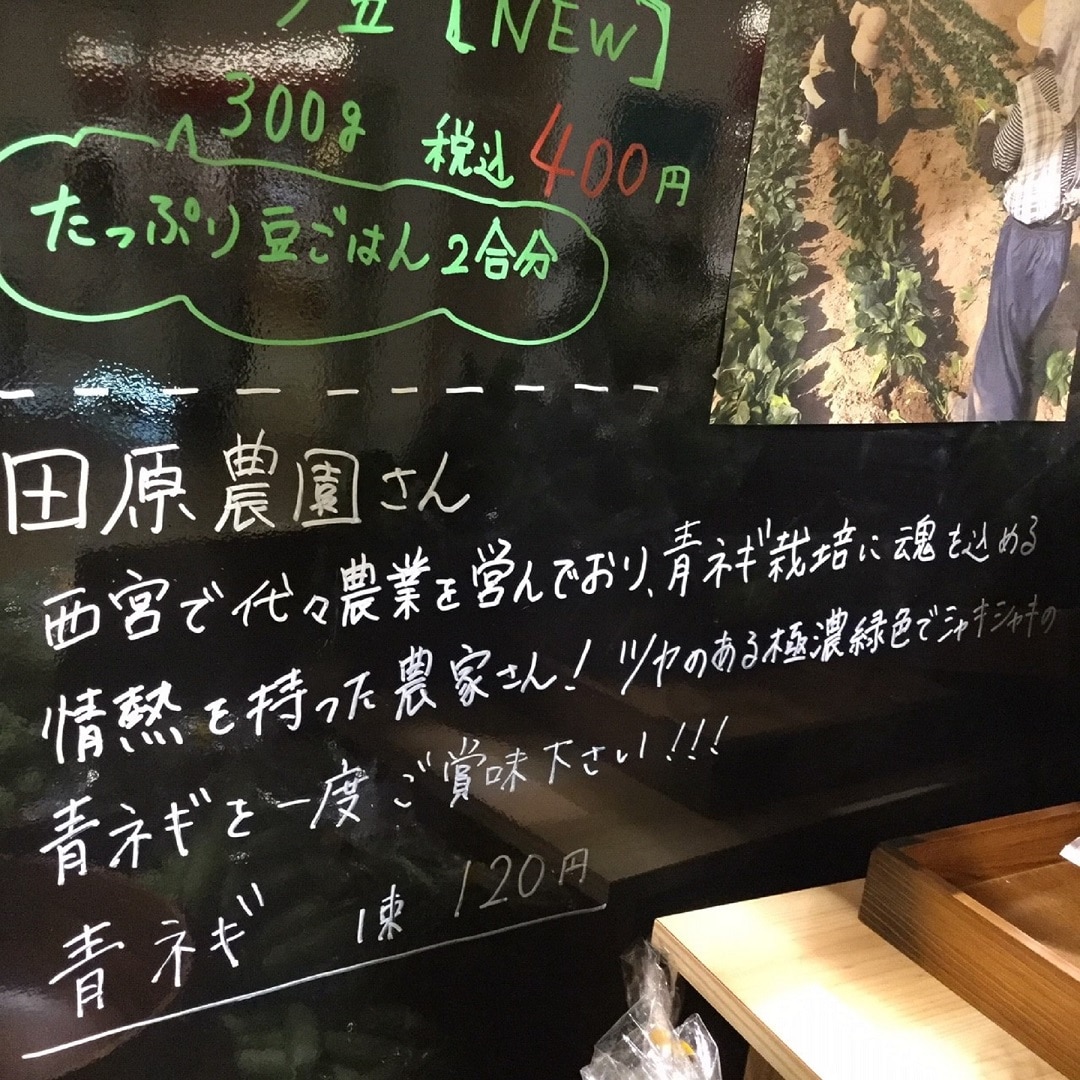 豆【NEW】
300g 税込 400円
たっぷり豆ごはん2合分
田原農園さん
西宮で代々農業を営んでおり、青ネギ栽培に魂を込める
情熱を持った農家さん！ツヤのある極濃緑色でシャキシャキの
青ネギを一度ご賞味下さい!!!
青ネギ 1束 120円